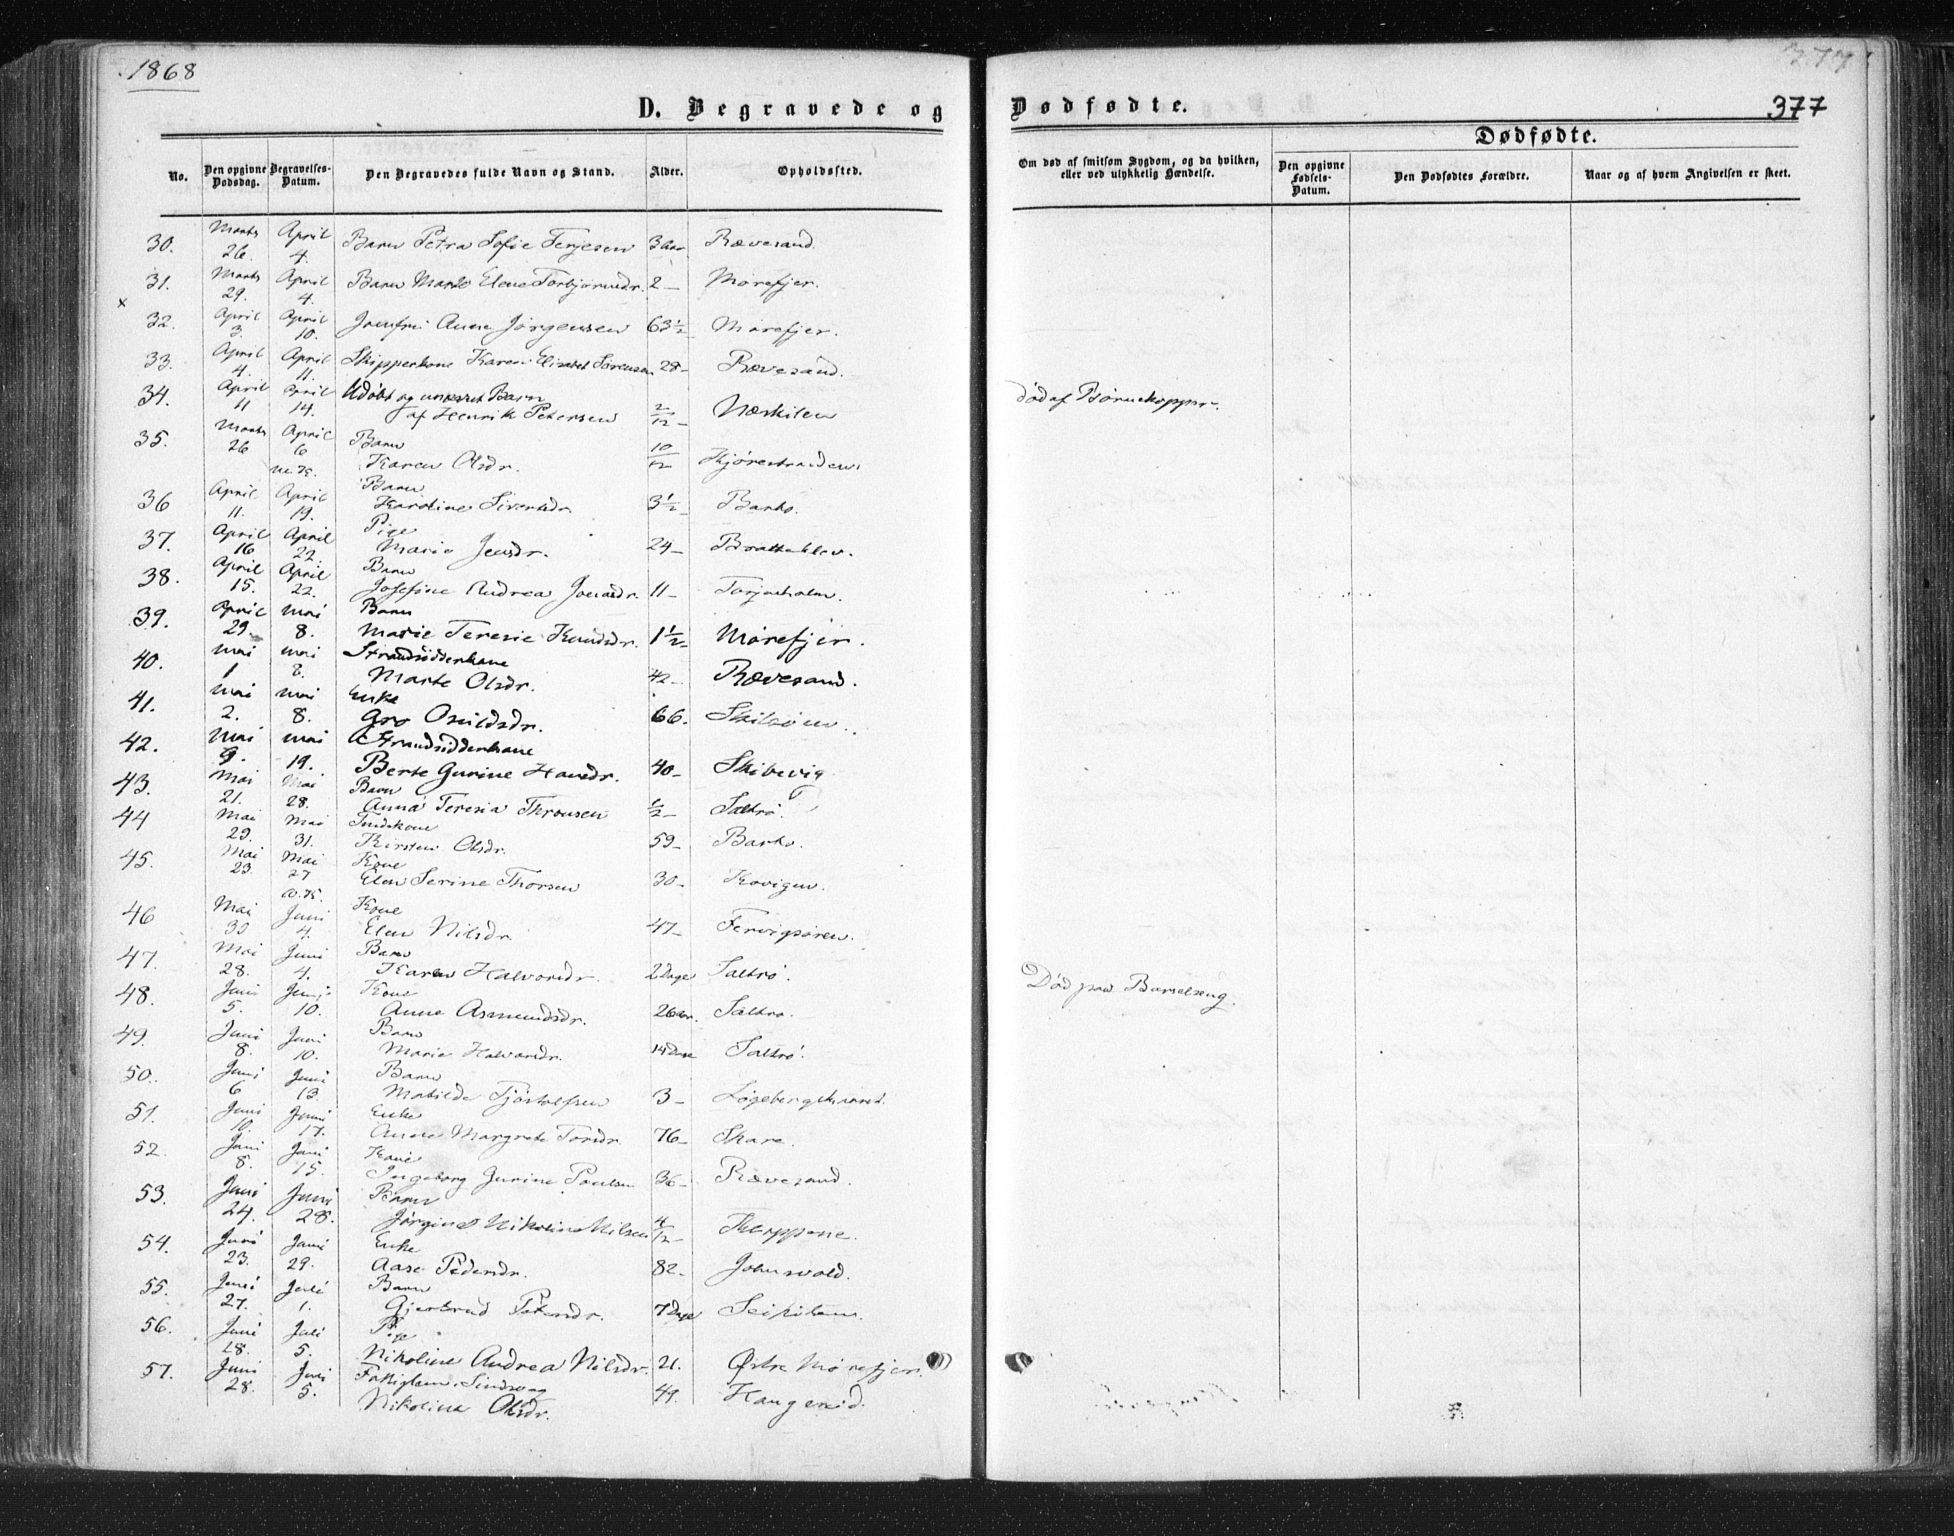 1868
377
D. Begravede og Dødfødte.
377
Dødfødte.
No.
Den opgivne Dødsdag.
Begravelses-Datum.
Den Begravedes fulde Navn og Stand.
Alder.
Opholdssted.
Om død af smitsom Sygdom, og da hvilken, eller ved ulykkelig Hændelse.
Den opgivne Fødsels-Datum.
Den Dødfødtes Forældre.
Naar og af hvem Angivelsen er skeet.
30. Marts 26. April 4. Barn Petra Sofie Terjesen 3 aar Rævesand.
31. Marts 29. April 4. Barn Marte Elene Torbjørnsdr. 2 – Mørefjer.
x
32. April 3. April 10. Jomfru Anne Jørgensen 63 1/2 Mørefjer.
33. April 4. April 11. Skipperkone Karen Elisabet Sørensen 28 – Rævesand.
34. April 11 April 14. Udøbt og unævnt Barn
af Henrik Petersen 2/12 – Næskilen død af Børnekopper.
35. Marts 26 April 6 Barn
Karen Olsdr. 10/12 Kjørestranden
36 April 11. April 19. Barn
Karoline Sivertsdr. 3 1/2 – Barbo.
37. April 16 April 22. Pige
Marie Jensdr. 24 – Bratteklev.
38. April 15. April 22. Barn
Josefine Andrea Jonasdr. 11 – Torjusholm.
39. April 29. Mai 8. Barn
Marie Teresie Knudsdr. 1 1/2 – Mørefjer.
40. Mai 1 Mai 8. Strandsidderkone
Marte Olsdr. 42 – Rævesand.
41. Mai 2. Mai 8. Enke
Gro Osuldsdr. 66. Skilsøen.
42. Mai 9. Mai 19. Strandsidderkone
Berte Gurine Hansdr. 40 – Skibevig
43. Mai 21. Mai 28. Barn
Anna Teresia Thronsen 1/2 – Saltrø.
44 Mai 29. Mai 31. Kirsten Olsdr. 59 – Barbo.
45. Mai 23. Mai 27 Kone
Elen Serine Thorsen 30 – Kovigen.
46 Mai 30 Juni 4. Kone
Elen Nilsdr. 47 – Fervigsøren.
47. Mai 28. Juni 4. Barn
Karen Halvorsdr. 2 Dage Saltrø.
48. Juni 5. Juni 10. Kone
Anne Asmundsdr. 26 aar. Saltrø. Død paa Barselseng.
49. Juni 8. Juni 10. Barn
Marie Halvorsdr. 14 Dage Saltrø.
50. Juni 6 Juni 13 Barn
Matilde Tjøstolfsen 3 – Løgebergskaaret.
51. Juni 10. Juni 17. Enke
Anne Margrete Torsdr. 76 – Skare.
52. Juni 8. Juni 15. Kone
Ingeborg Gurine Paulsen 36 – Rævesand.
53. Juni 24. Juni 28. Barn
Jørgine Nikoline Nilsen 4/12 – Klappene.
54. Juni 23. Juni 29. Enke
Aase Pedersdr. 82 – Johnsvold.
55. Juni 27. Juli 1. Barn
Gjertrud Petersdr. 7 Dage
56. Juni 28. Juli 5. Pige
Nikoline Andrea Nilsdr. 21. Østre Mørefjer.
57. Juni 28. Juli 5. Fattiglem, Sindssvag
Nikoline Olsdr. 49. Haugenid.